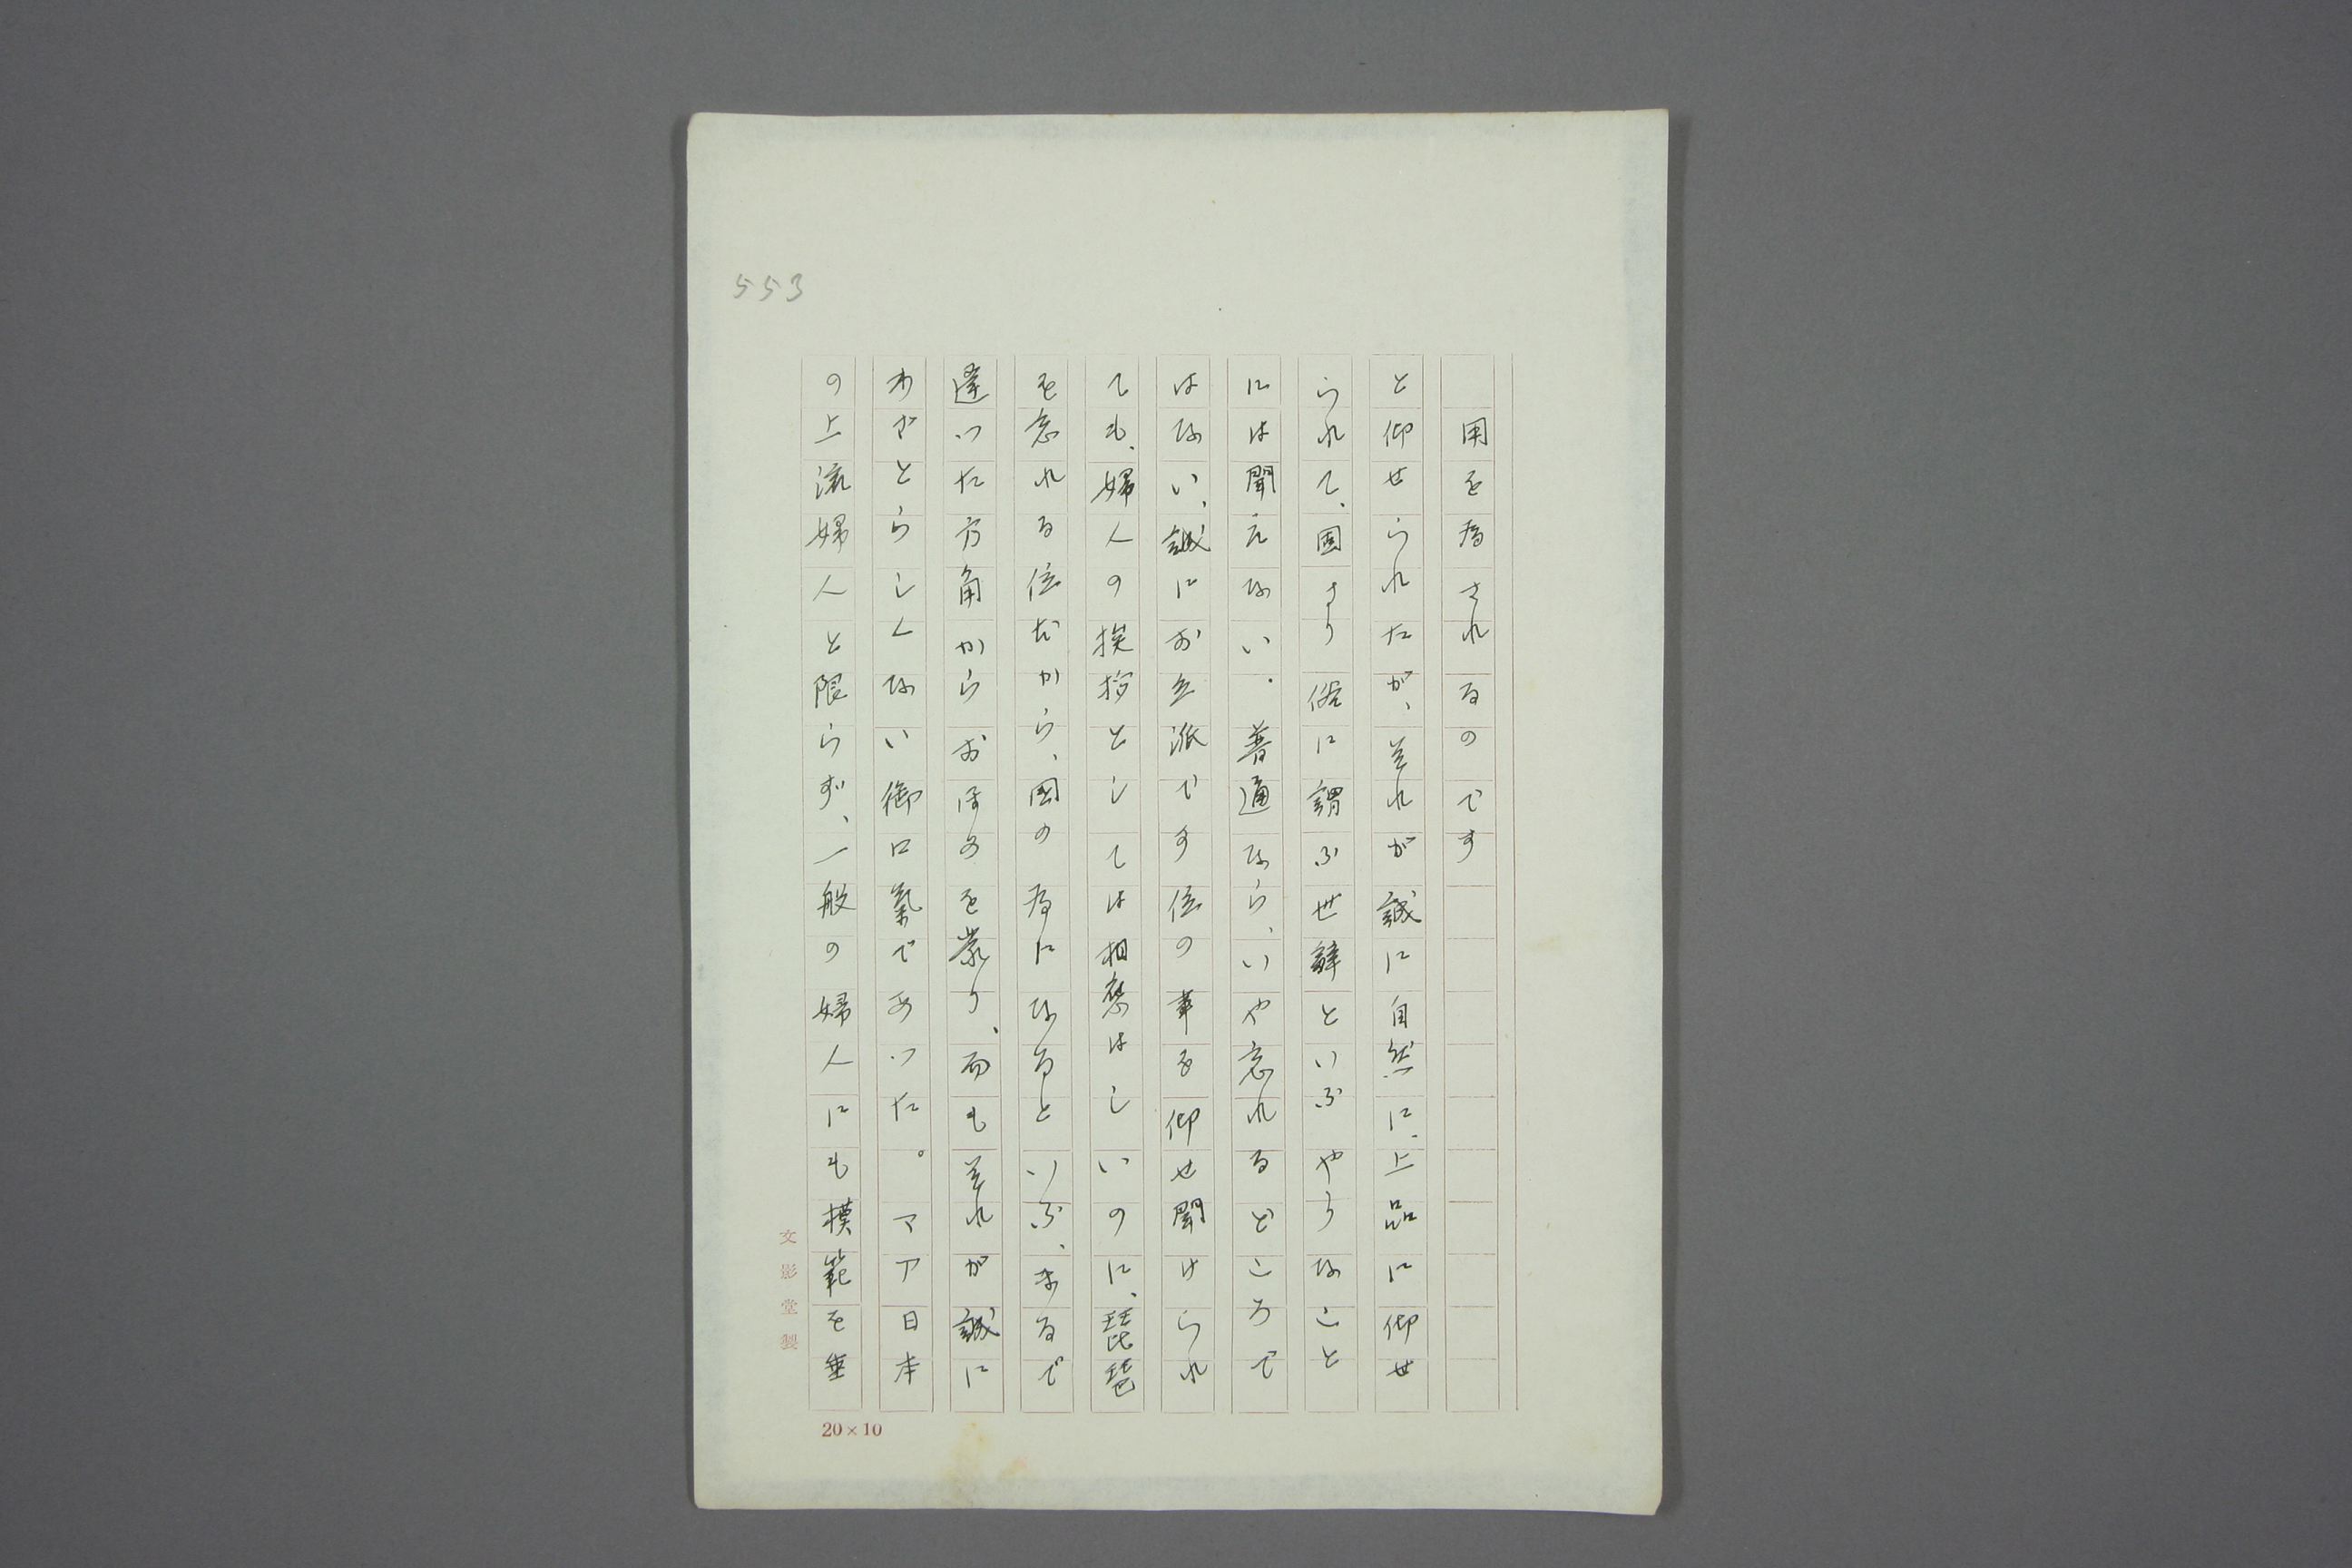 553
用を為されるのです
と仰せられたが、それが誠に自然に、上品に仰せ
られて、固より俗に謂ふ世辭といふやうなこと
には聞えない。普通なら、いや忘れるどころで
はない、誠にお立派です位の事を仰せ聞けられ
ても、婦人の挨拶としては相應はしいのに、琵琶
を忘れる位だから、國の為になるといふ、まるで
違つた方角からおほめを蒙り、而もそれが誠に
わざとらしくない御口氣であつた。マア日本
の上流婦人と限らず、一般の婦人にも模範を垂
文影堂製
20×10